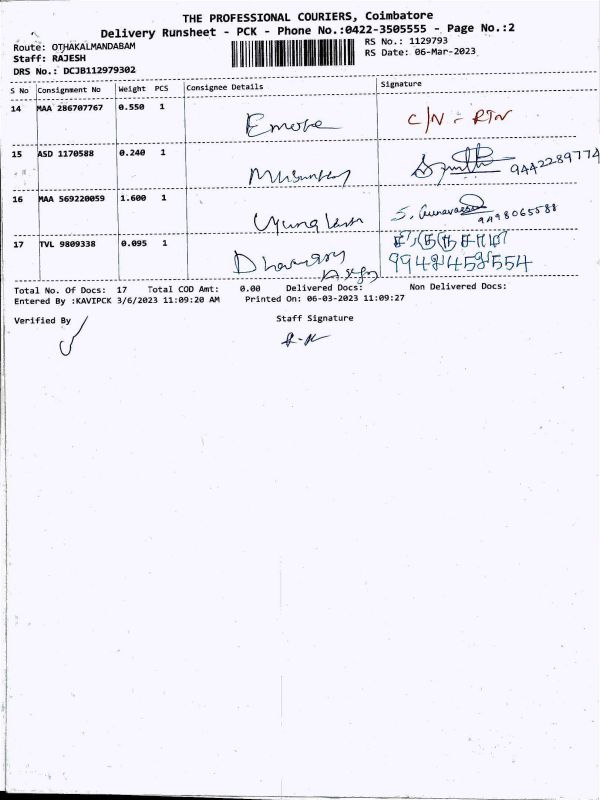 THE PROFESSIONAL COURIERS, Coimbatore
Delivery Runsheet - PCK - Phone No.:0422-3505555 - Page No.:2
Route: OTHAKALMANDABAM RS No.: 1129793
Staff: RAJESH RS Date: 06-Mar-2023
DRS No.: DCJB112979302
S No Consignment No Weight PCS Consignee Details Signature
14 MAA 286707767 0.550 1 C/N - RTN
15 ASD 1170588 0.240 1 9442289774
16 MAA 569220059 1.600 1 9498065588
17 TVL 9809338 0.095 1
Total No. Of Docs: 17 Total COD Amt: 0.00 Delivered Docs: Non Delivered Docs:
Entered By :KAVIPCK 3/6/2023 11:09:20 AM Printed On: 06-03-2023 11:09:27
Verified By Staff Signature